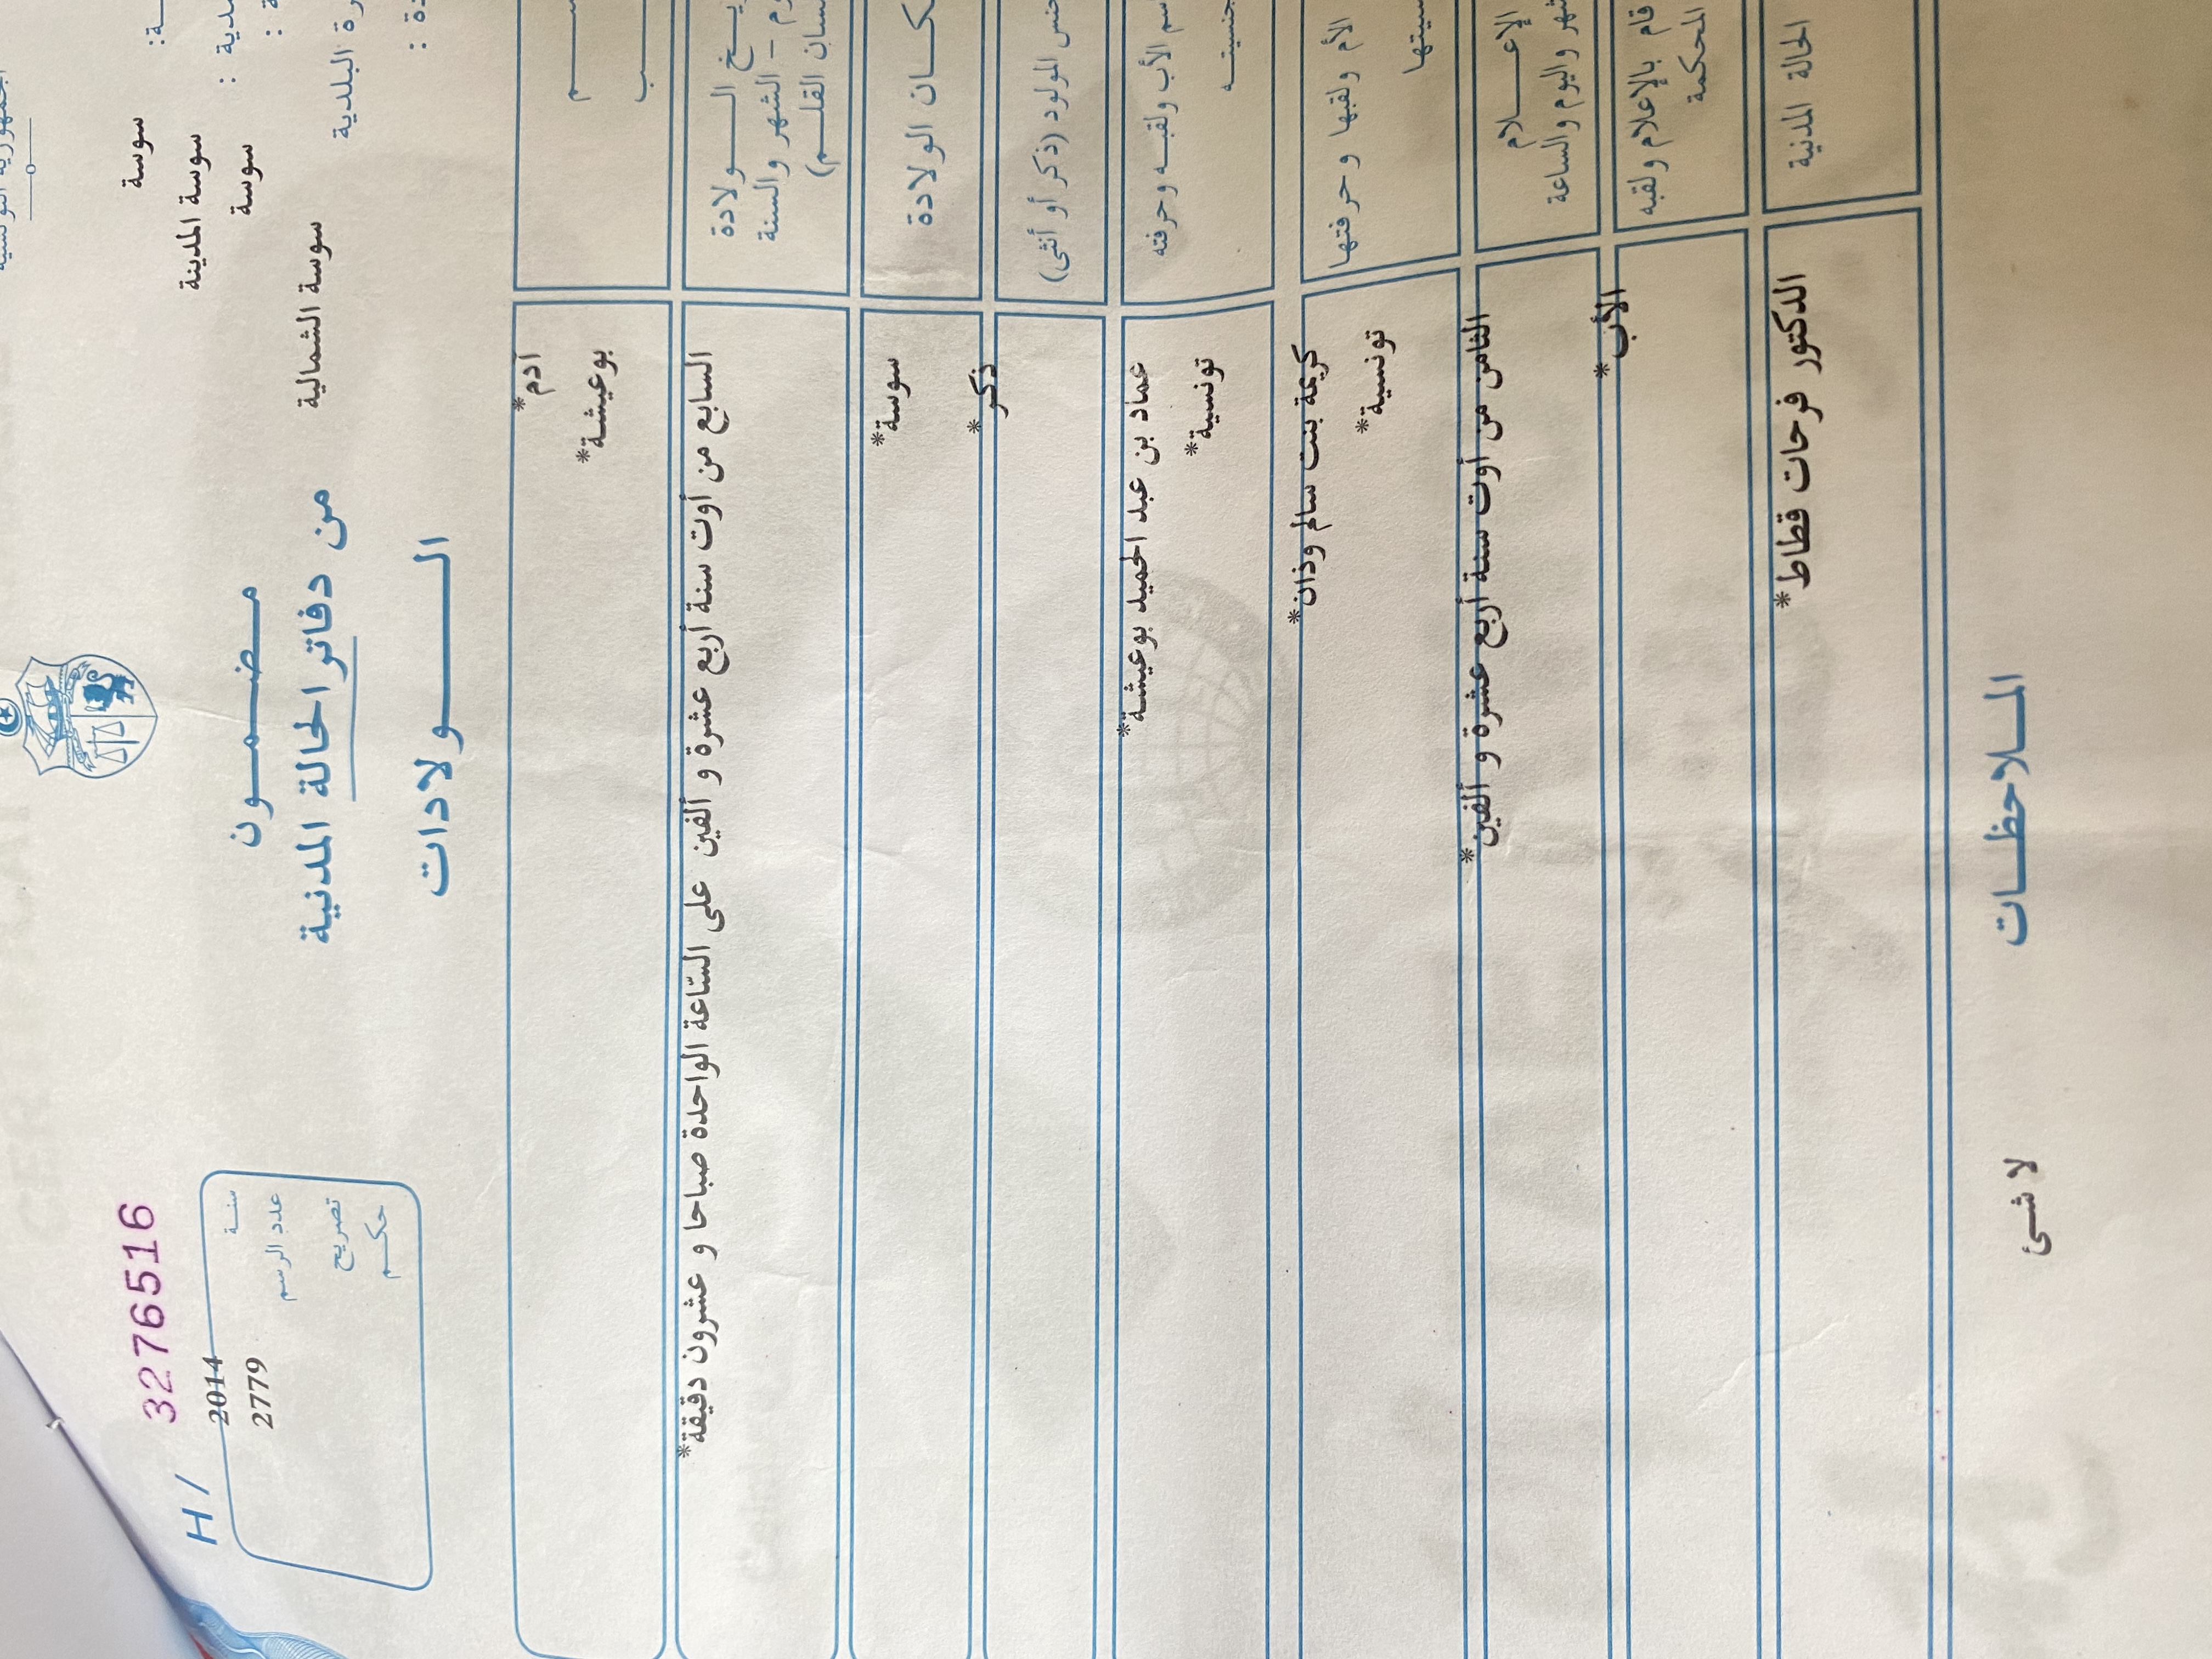 H/ 3276516
سنة 2014
عدد الرسم 2779
تصريح
حكم
سوسة
سوسة المدينة
سوسة
سوسة الشمالية
البلدية
مضمون
من دفاتر الحالة المدنية
الولادات
آدم*
بوعيشة*
الولادة
الشهر والسنة
القلم)
السابع من أوت سنة أربع عشرة و ألفين على الساعة الواحدة صباحا و عشرون دقيقة*
الولادة
سوسة*
المولود (ذكر أو أنثى)
ذكر*
الأب ولقبه وحرفته
عماد بن عبد الحميد بوعيشة*
تونسية*
الأم ولقبها وحرفتها
كريمة بنت سالم وذان*
تونسية*
الإعلام
واليوم والساعة
الثامن من أوت سنة أربع عشرة و ألفين*
قام بالإعلام ولقبه
المحكمة
الأب*
الحالة المدنية
الدكتور فرحات قطاط*
الملاحظات
لا شئ